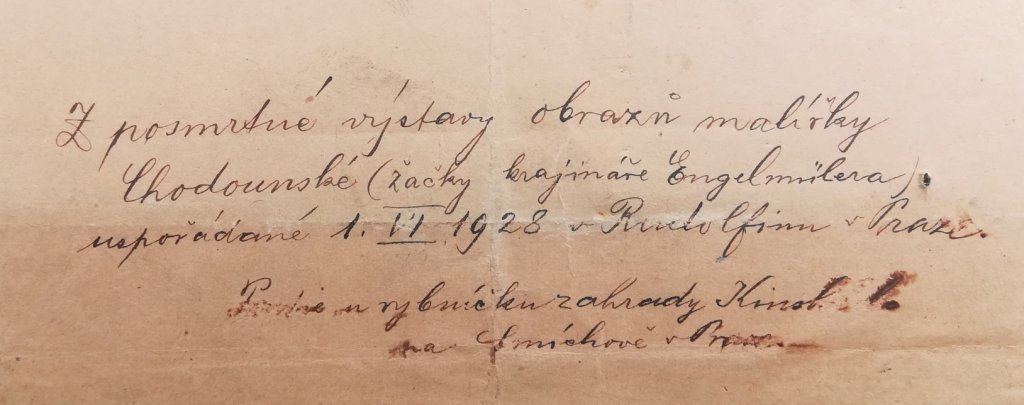 Z posmrtné výstavy obrazů malířky
Chodounské (žačky krajináře Engelmülera).
uspořádané 1. VI. 1928 v Rudolfinu v Praze.
u rybníčku zahrady
na Smíchově v Praze